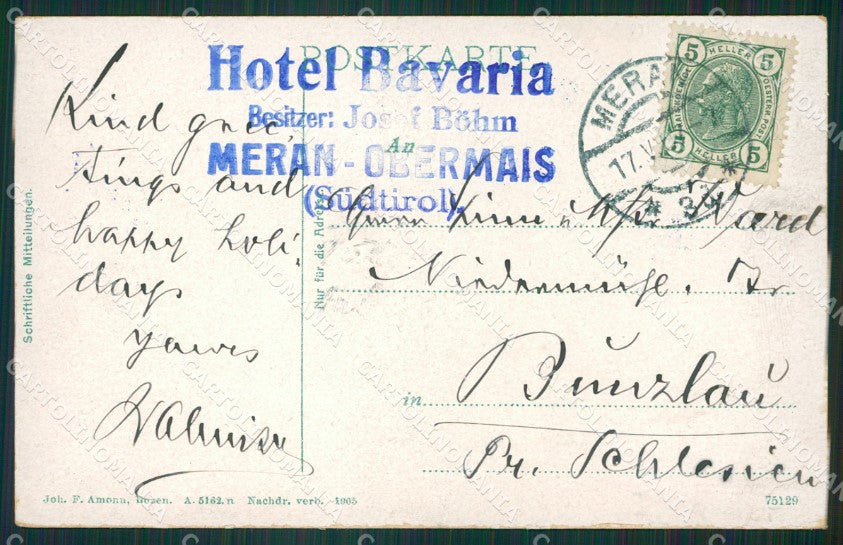 POSTKARTE
Hotel Bavaria
Besitzer: Josef Böhm
An
MERAN-OBERMAIS
(Südtirol).
MERAN
17.V
* 3
5 HELLER 5
5 HELLER 5
Kind gree-
tings and
happy holi-
days
yours
Schriftliche Mitteilungen.
Nur für die Adresse
Herrn
Niedermühl.
in Bunzlau
Pr. Schlesien
Joh. F. Amonn, Bozen. A. 5162.n Nachdr. verb. 1905
75129
CARTOLINOMANIA